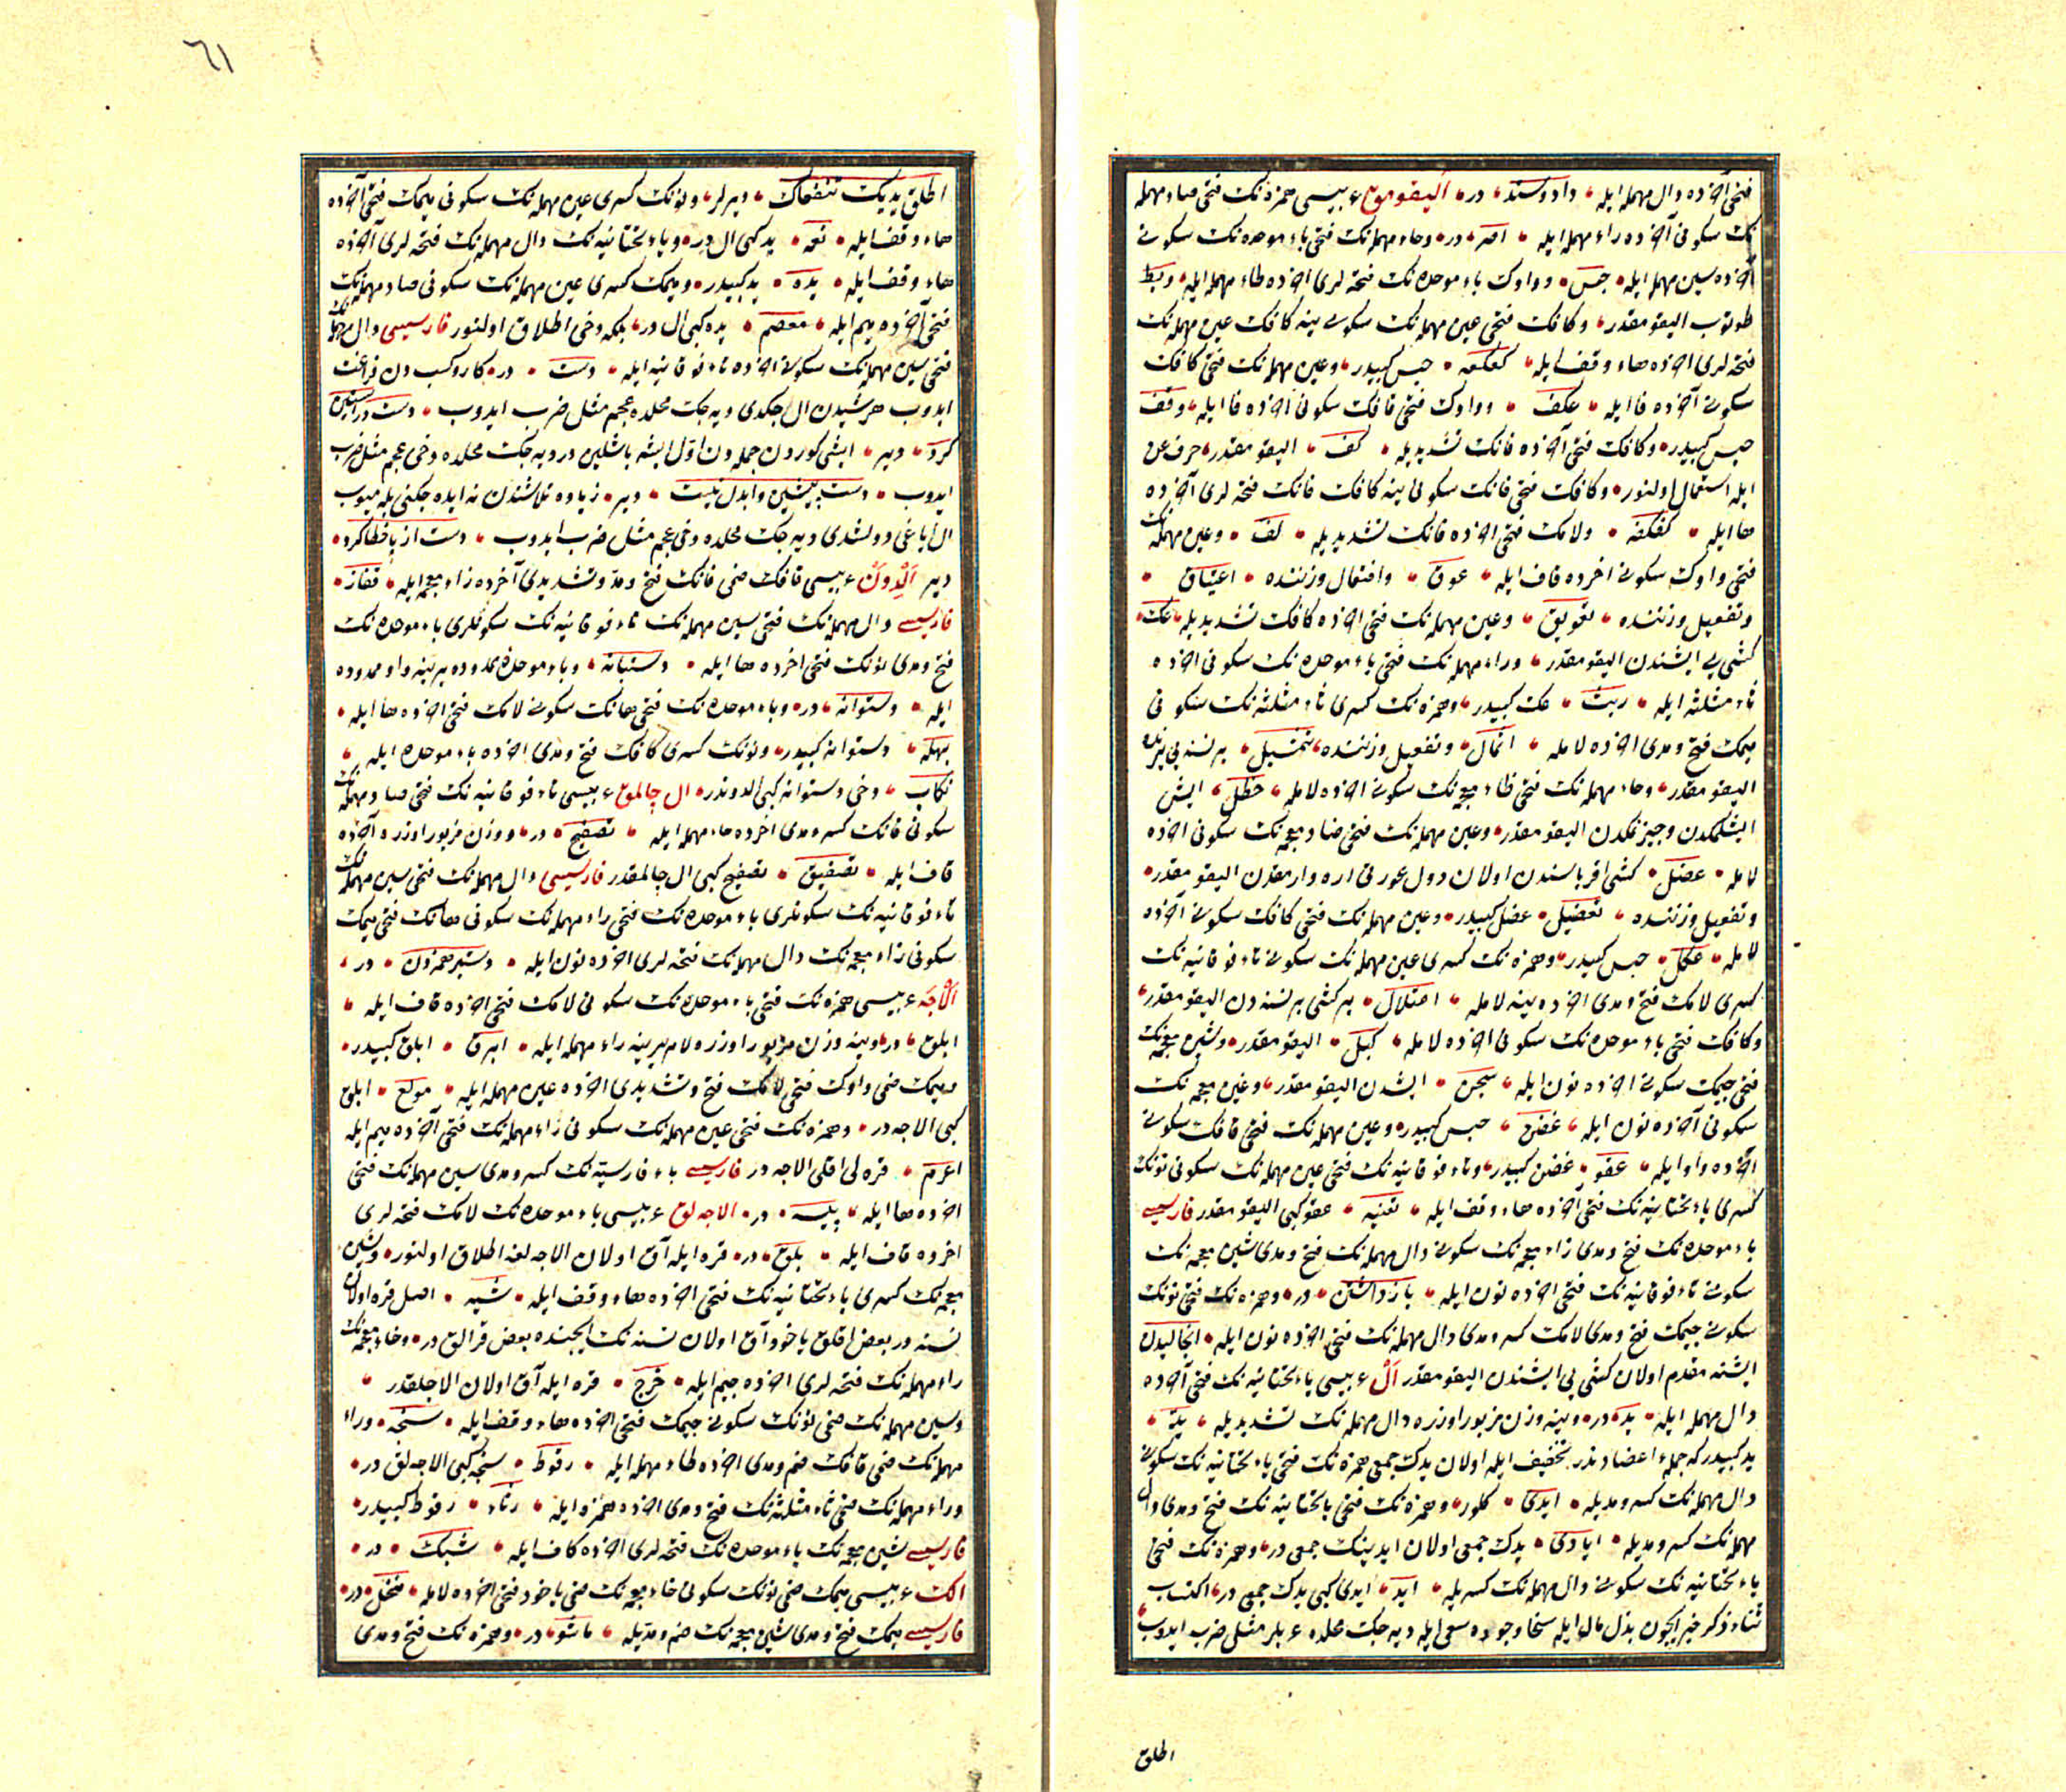 فتحى آخرده دال مهمله ايله داد وستد در اليقومق عربيسى همزه نك فتحى صاد مهمله
نك سكونى آخرده راء مهمله ايله اصر در وحاء مهمله نك فتحى باء موحده نك سكونى
آخرده سين مهمله ايله حبس وواوك باء موحده نك فتحه لرى آخرده طاء مهمله ايله وبط
طوتوب اليقومقدر وكافك فتحى عين مهمله نك سكونى ينه كافك عين مهمله نك
فتحه لرى آخرده هاء وقف ايله كعكعه حبس كبيدر وعين مهمله نك فتحى كافك
سكونى آخرده فا ايله عكف وواوك فتحى قافك سكونى آخرده فا ايله وقف
حبس كبيدر وكافك فتحى آخرده فانك تشديديله كف اليقومقدر حرف عن
ايله استعمال اولنور وكافك فتحى فانك سكونى ينه كافك فانك فتحه لرى آخرده
ها ايله كفكفه ولامك فتحى آخرده فانك تشديديله لف وعين مهمله نك
فتحى واوك سكونى آخرده قاف ايله عوق وافتعال وزننده اعتياق
وتفعيل وزننده تعويق وعين مهمله نك فتحى آخرده كافك تشديديله عك
كشى يى ايشندن اليقومقدر وراء مهمله نك فتحى باء موحده نك سكونى آخرده
ثاء مثلثه ايله ربث عك كبيدر وهمزه نك كسرى ثاء مثلثه نك سكونى
ميمك فتح ومدى آخرده لامله اثمال وتفعيل وزننده تثميل بر نسنه يى يرنده
اليقومقدر وحاء مهمله نك فتحى ظاء معجمه نك سكونى آخرده لامله حظل ايش
ايشلمكدن وجيزنمكدن اليقومقدر وعين مهمله نك فتحى ضاد معجمه نك سكونى آخرده
لامله عضل كشى اقرباسندن اولان دول عورتى اره وارمقدن اليقومقدر
وتفعيل وزننده تعضيل عضل كبيدر وعين مهمله نك فتحى كافك سكونى آخرده
لامله عكل حبس كبيدر وهمزه نك كسرى عين مهمله نك سكونى تاء فوقانيه نك
كسرى لامك فتح ومدى آخرده ينه لامله اعتلال بر كشى بر نسنه دن اليقومقدر
وكافك فتحى باء موحده نك سكونى آخرده لامله كبل اليقومقدر وشين معجمه نك
فتحى جيمك سكونى آخرده نون ايله شجن ايشدن اليقومقدر وغين معجمه نك
سكونى آخرده نون ايله غضن حبس كبيدر وعين مهمله نك فتحى قافك سكونى
آخرده واو ايله عقو غضن كبيدر وتاء فوقانيه نك فتحى عين مهمله نك سكونى نونك
كسرى ياء تحتانيه نك فتحى آخرده هاء وقف ايله تعنيه عقو كبى اليقومقدر فارسيسى
باء موحده نك فتح ومدى زاء معجمه نك سكونى دال مهمله نك فتح ومدى شين معجمه نك
سكونى تاء فوقانيه نك فتحى آخرده نون ايله بازداشتن در وهمزه نك فتحى نونك
سكونى جيمك فتح ومدى لامك كسر ومدى دال مهمله نك فتحى آخرده نون ايله انجاليدن
ايشنه مقدم اولان كشى يى ايشندن اليقومقدر ال عربيسى ياء تحتانيه نك فتحى آخرده
دال مهمله ايله يد در وينه وزن مزبور اوزره دال مهمله نك تشديديله يد
يد كبيدر كه جمله اعضادندر تخفيف ايله اولان يدك جمعى همزه نك فتحى ياء تحتانيه نك سكونى
دال مهمله نك كسر ومديله ايدى كلور وهمزه نك فتحى يا تحتانيه نك فتح ومدى دال
مهمله نك كسر ومديله ايادى يدك جمعى اولان ايدينك جمعى در وهمزه نك فتحى
ياء تحتانيه نك سكونى دال مهمله نك كسريله ايد ايدى كبى يدك جمعى در اكتساب
ثناء وذكر خير ايچون بذل مال ايله سخا وجوده سعى ايله ديه جك محلده عربلر مثلى ضرب ايدوب
اطلق
٦١
اطلق يديك تنفعاك ديرلر ونونك كسرى عين مهمله نك سكونى ميمك فتحى آخرده
هاء وقف ايله نعمه يد كبى ال در وياء تحتانيه نك دال مهمله نك فتحه لرى آخرده
هاء وقف ايله يده يد كبيدر وميمك كسرى عين مهمله نك سكونى صاد مهمله نك
فتحى آخرده ميم ايله معصم يده كبى ال در بلكه دخى اطلاق اولنور فارسيسى دال مهمله نك
فتحى سين مهمله نك سكونى آخرده تاء فوقانيه ايله دست در كار وكسبدن فراغت
ايدوب هر شيدن ال چكدى ديه جك محلده عجم مثل ضرب ايدوب دست در آستين
كرد دير ايشى كورون جمله دن اول ايشه باشلين در ديه جك محلده دخى عجم مثل ضرب
ايدوب دست پيشين را بدل نيست دير زياده تلاشندن نه ايده جكنى بيلميوب
ال اياغى دولشدى ديه جك محلده دخى عجم مثل ضرب ايدوب دست از پا خطا كرد
دير الدون عربيسى قافك ضمى فانك فتح ومد وتشديدى آخرده زاء معجمه ايله قفاز
فارسيسى دال مهمله نك فتحى سين مهمله نك تاء فوقانيه نك سكونلرى باء موحده نك
فتح ومدى نونك فتحى آخرده ها ايله دستبانه وباء موحده ممدوده يرينه واو ممدوده
ايله دستوانه در وباء موحده نك فتحى هانك سكونى لامك فتحى آخرده ها ايله
بهله دستوانه كبيدر ونونك كسرى كافك فتح ومدى آخرده باء موحده ايله
نكاب دخى دستوانه كبى الدوندر ال چالمق عربيسى تاء فوقانيه نك فتحى صاد مهمله نك
سكونى فانك كسر ومدى آخرده حاء مهمله ايله تصفيح در ووزن مزبور اوزره آخرده
قاف ايله تصفيق تصفيح كبى ال چالمقدر فارسيسى دال مهمله نك فتحى سين مهمله نك
تاء فوقانيه نك سكونلرى باء موحده نك فتحى راء مهمله نك سكونى هانك فتحى ميمك
سكونى زاء معجمه نك دال مهمله نك فتحه لرى آخرده نون ايله دستبرهمزدن در
الاجه عربيسى همزه نك فتحى باء موحده نك سكونى لامك فتحى آخرده قاف ايله
ابلق در وينه وزن مزبور اوزره لام يرينه راء مهمله ايله ابرق ابلق كبيدر
وميمك ضمى واوك فتحى لامك فتح وتشديدى آخرده عين مهمله ايله مولع ابلق
كبى الاجه در وهمزه نك فتحى عين مهمله نك سكونى راء مهمله نك فتحى آخرده ميم ايله
اعرم قره لى اقلى الاجه در فارسيسى باء فارسيه نك كسر ومدى سين مهمله نك فتحى
آخرده ها ايله پيسه در الاجه لق عربيسى باء موحده نك لامك فتحه لرى
آخرده قاف ايله بلق در قره ايله آق اولان الاجه لغه اطلاق اولنور وشين
معجمه نك كسرى ياء تحتانيه نك فتحى آخرده هاء وقف ايله شيه اصل قره اولان
نسنه در بعض اقلق ياخود آق اولان نسنه نك ايچنده بعض قرالق در وخاء معجمه نك
راء مهمله نك فتحه لرى آخرده جيم ايله خرج قره ايله آق اولان الاجلقدر
وسين مهمله نك ضمى نونك سكونى جيمك فتحى آخرده هاء وقف ايله سنجه وراء
مهمله نك ضمى قافك ضم ومدى آخرده طاء مهمله ايله رقوط سنجه كبى الاجه لق در
وراء مهمله نك ضمى ثاء مثلثه نك فتح ومدى آخرده همزه ايله رثاء رقوط كبيدر
فارسيسى شين معجمه نك باء موحده نك فتحه لرى آخرده كاف ايله شبك در
الك عربيسى ميمك ضمى نونك سكونى خاء معجمه نك ضمى ياخود فتحى آخرده لامله منخل در
فارسيسى ميمك فتح ومدى شين معجمه نك ضم ومديله ماشو در وهمزه نك فتح ومدى